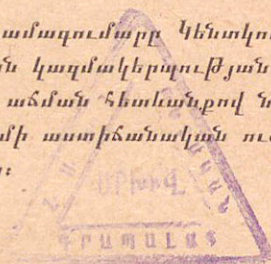 ամագումարը Կենտկո
ն կազմակերպության
աճման հետևանքով ն
մի աստիճանական ու
ԱՐԽԻՎ
ԳՐԱՊԱԼԱՏ